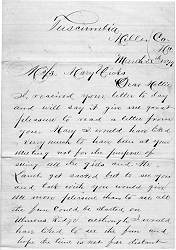 Tuscumbia
Miller Co.
Mo.
March
Miss Mary
Dear
I received your letter to day
and will say it give me great
pleasure to read a letter from
you. Mary I would have liked
very much to have been at your
not for the purpose of
seeing all the girls and
Lamb get but to see you
and talk with you would give
me more pleasure than to see all
the fun could be on
although I would
have liked to see the fun and
hope the time is not far distant